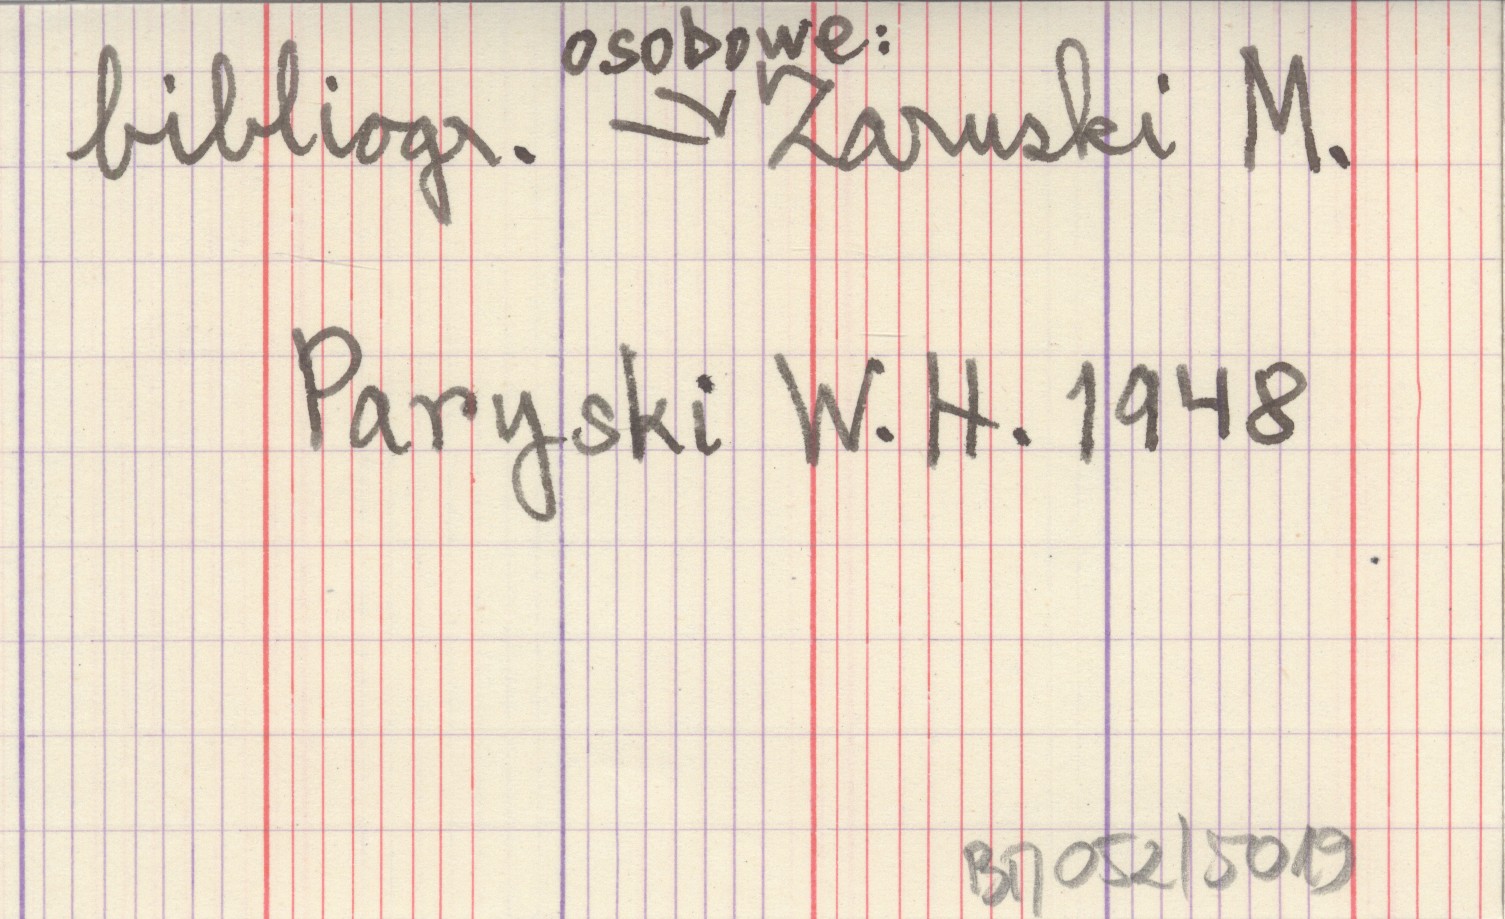 osobowe:
bibliogr. → Zaruski M.
Paryski W. H. 1948
052/5019